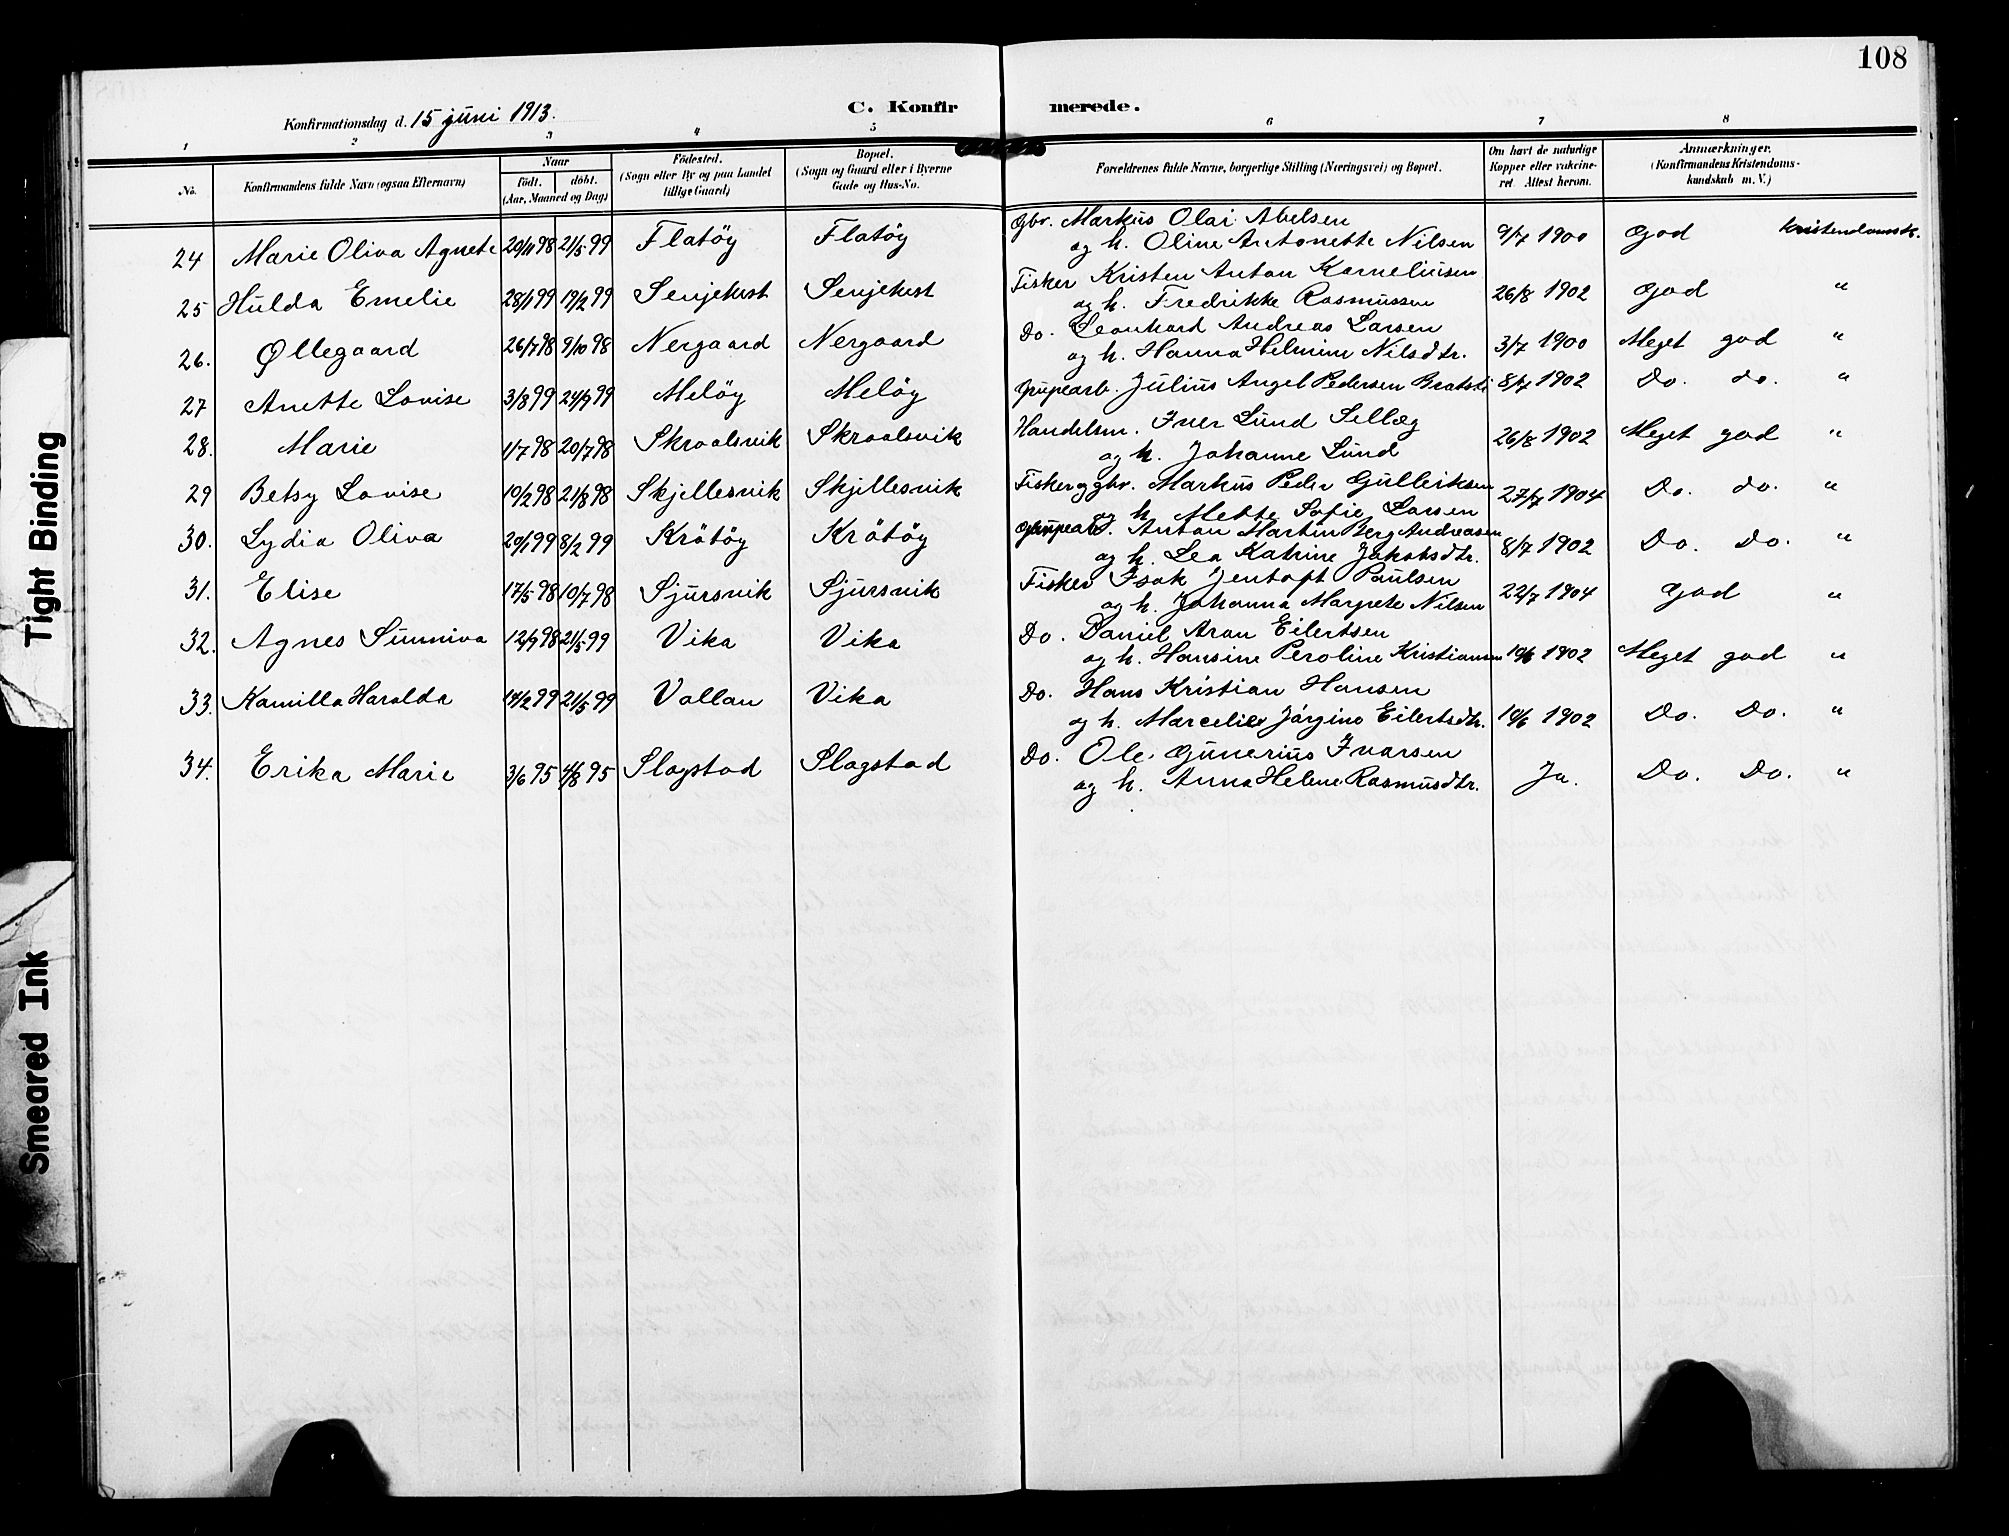 108
Konfirmationsdag d. 15 juni 1913.
C. Konfirmerede.
1 2 3 4 5 6 7 8
No. Konfirmandens fulde Navn (ogsaa Efternavn) Naar født. døbt. (Aar, Maaned og Dag) Fødested. (Sogn eller By og paa Landet tillige Gaard) Bopæl. (Sogn og Gaard eller i Byerne Gade og Hus-No. Forældrenes fulde Navne, borgerlige Stilling (Næringsvei) og Bopæl. Om havt de naturlige Kopper eller vakcineret Attest herom. Anmærkninger. (Konfirmandens Kristendomskundskab m. V.)
24 Marie Oliva Agnete 20/11 98 21/5 99 Flatöy Flatöy Gbr. Markus Olai Abelsen
og h. Oline Antonette Nilsen 9/7 1900 God Kristendomsk.
25 Hulda Emelie 28/1 99 19/2 99 Senjehest Senjehest Fisker Kristen Anton Korneliusen
og h. Fredrikke Rasmussen 26/8 1902 God "
26. Øllegaard 26/7 98 9/10 98 Nergaard Nergaard Do. Leonhard Andreas Larsen
og h. Hanna Helmine Nilsdtr. 3/7 1900 Meget god "
27 Anette Lovise 3/8 99 24/9 99 Melöy Melöy Julius Angel Pedersen 8/7 1902 Do. do. "
28. Marie 1/7 98 20/7 98 Skroolsvik Skroolsvik Handelsm. Iver Lund Sellæg
og h. Johanne Lund 26/8 1902 Meget god "
29 Betsy Lovise 10/2 98 21/8 98 Skjellesvik Skjellesvik Fisker og gbr. Markus Peder Gulleriksen
og h. Mette Sofie Larsen 27/7 1904 Do. do. "
30. Lydia Oliva 20/1 99 8/2 99 Krötöy Krötöy Anton Martin Berg Andreasen
og h. Lea Katrine Jakobsdtr. 8/7 1902 Do. Do. "
31. Elise 17/5 98 10/7 98 Sjursvik Sjursvik Fisker Isak Jentoft Paulsen
og h. Johanna Margrete Nilsen 22/7 1904 God "
32. Agnes Sunniva 12/9 98 21/5 99 Vika Vika Do. Daniel Aran Eilertsen
og h. Hansine Peroline Kristiansen 19/6 1902 Meget god "
33. Kamilla Haralda 14/2 99 21/5 99 Vollan Vika Do. Hans Kristian Hansen
og h. Marcelie Jörgine Eilertsdtr. 19/6 1902 Do. Do. "
34. Erika Marie 3/6 95 4/8 95 Slagstad Slagstad Do. Ole Gunerius Ivarsen
og h. Anna Helene Rasmusdtr. Ja. Do. Do. "
Tight Binding
Smeared Ink